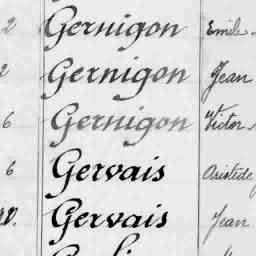 2 Gernigon Emile
2 Gernigon Jean
6 Gernigon Victor
6 Gervais Aristide
Gervais Jean